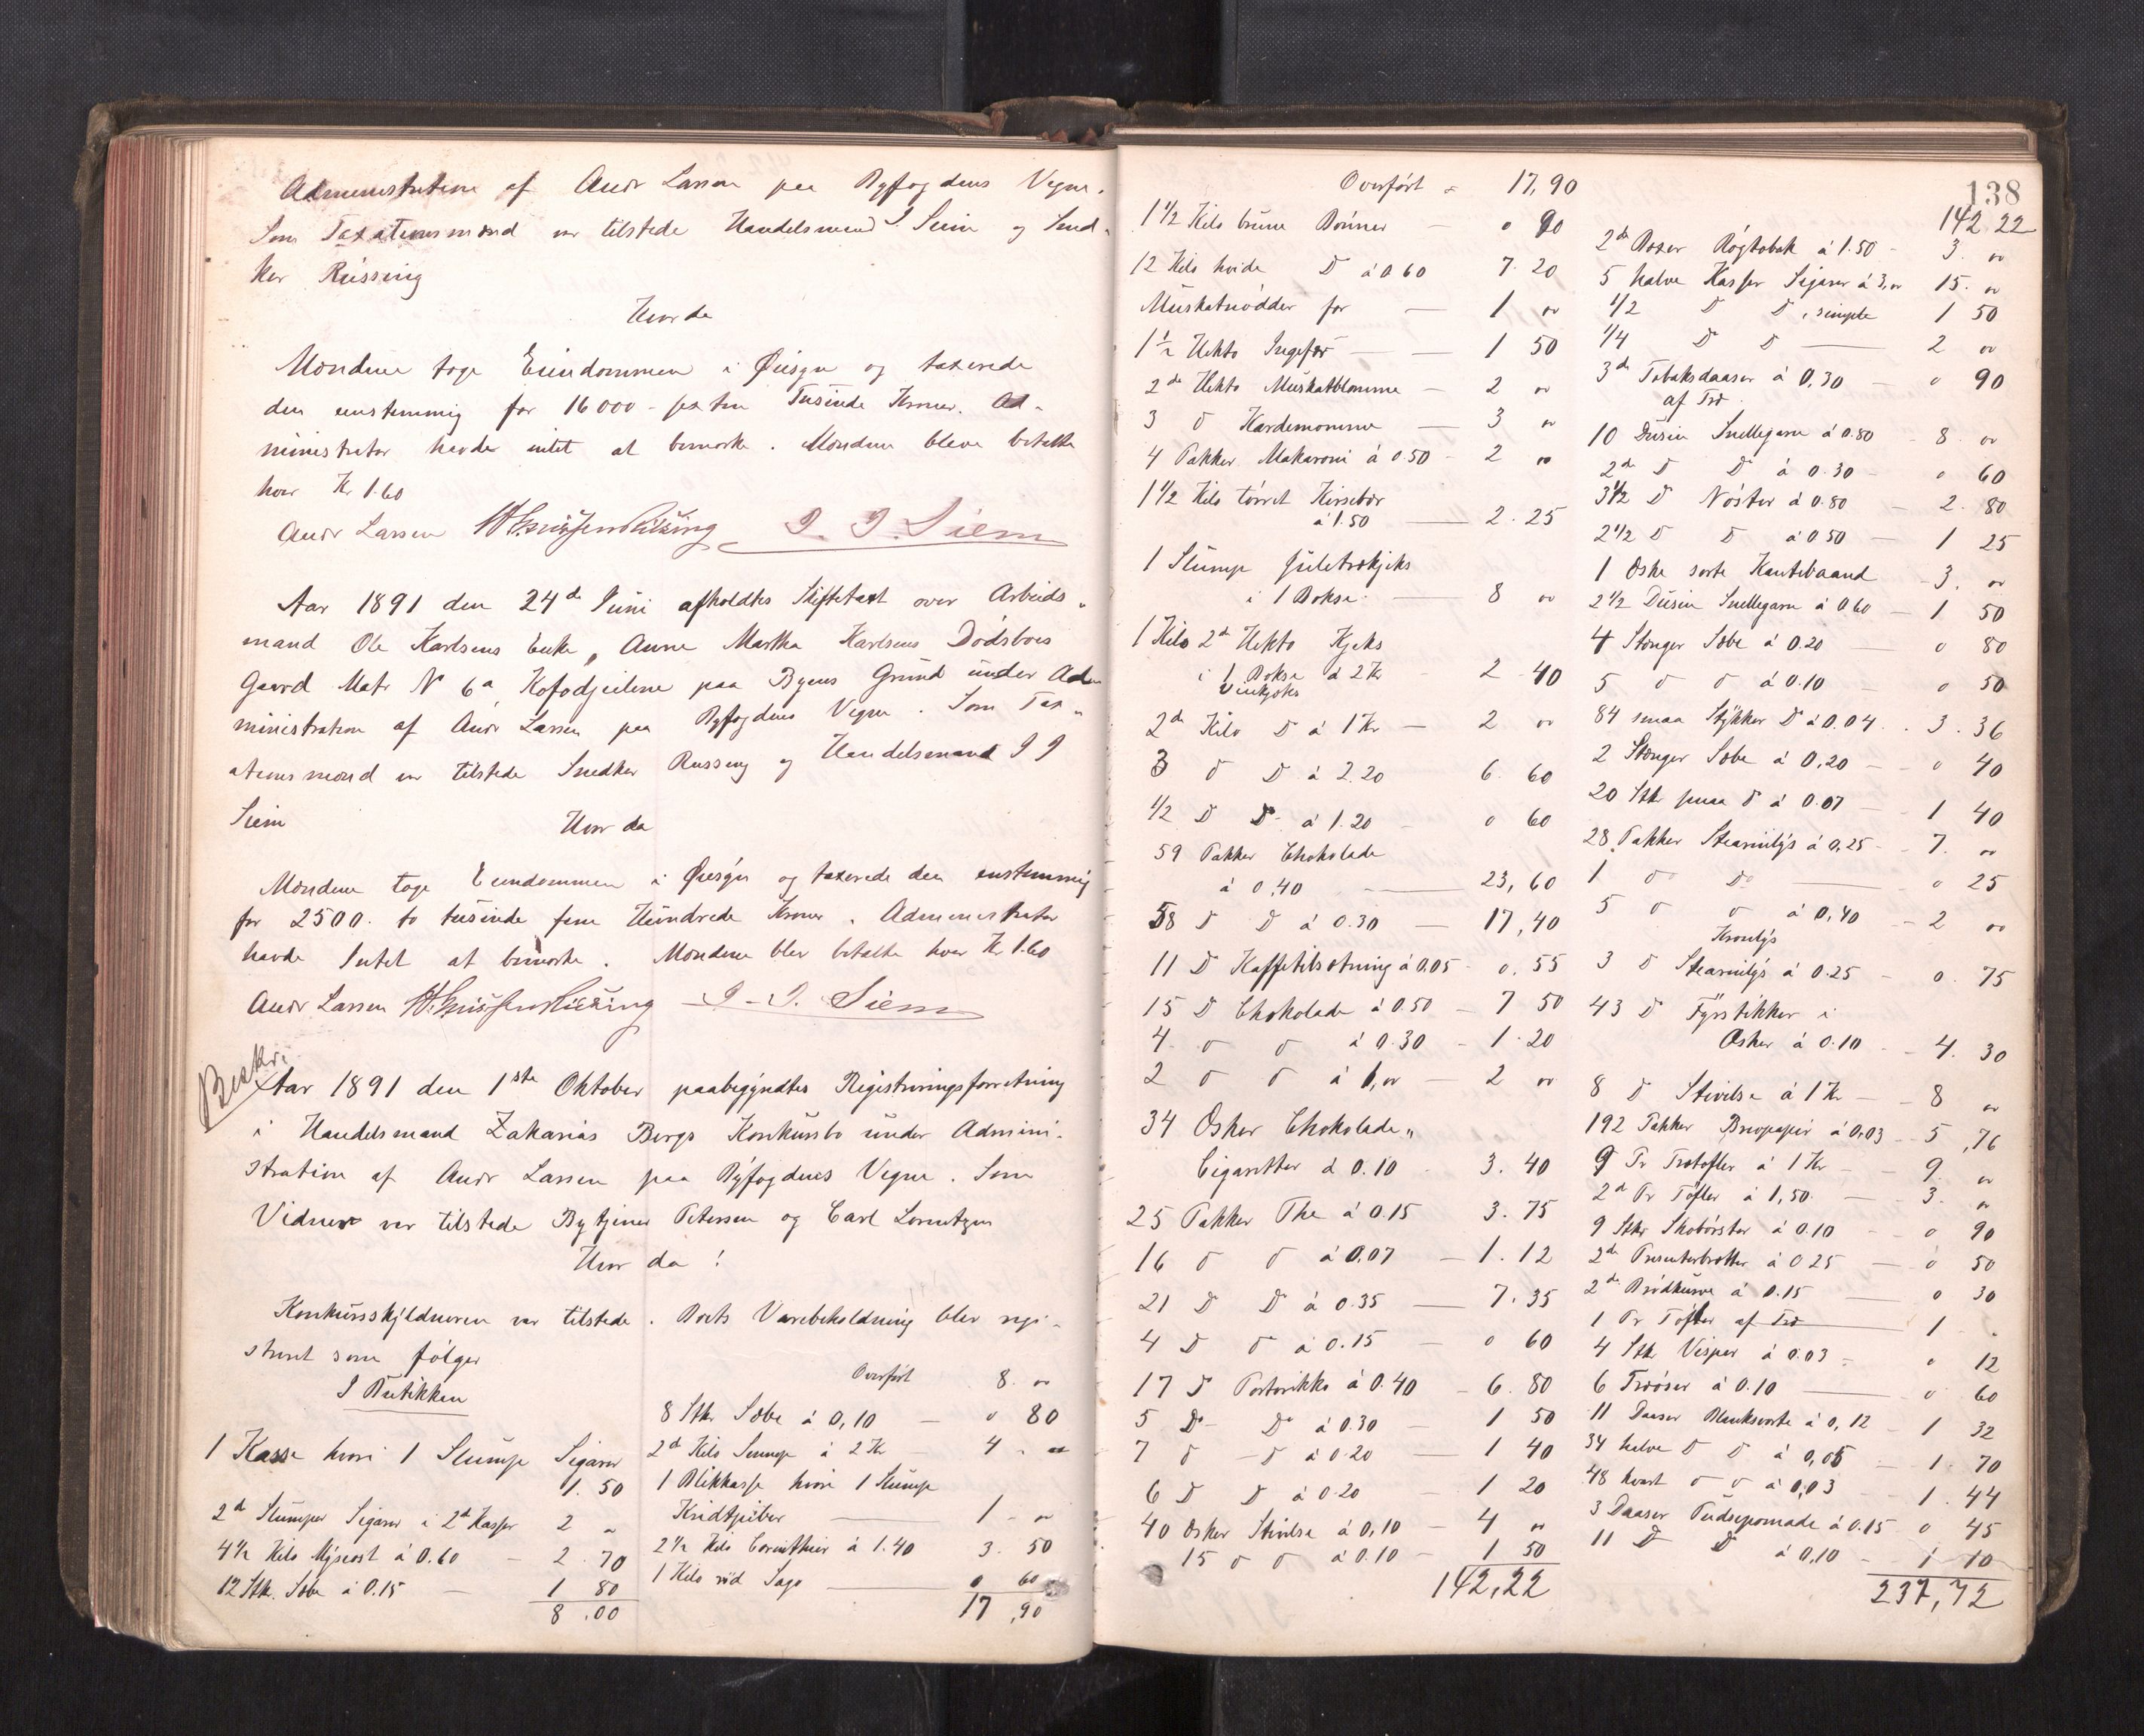 Administration af Andr Larsen paa Byfogdens Vegne.
Som Taxationsmænd var tilstede Handelsmand I Siem og Sned-
ker Rüssing
Hvor da
Mændene toge Eiendommen i Øiesyn og taxerede
den enstemmig for 16000 - sexten Tusinde Kroner. Ad-
ministrator havde intet at bemærke. Mændene bleve betalte
hver Kr 1.60
Andr Larsen I. I. Siem
Aar 1891 den 24de Juni afholdtes Skiftetaxt over Arbeids-
mand Ole Karlsens Enke, Anne Martha Karlsens Dødsboes
Gaard Matr N 6a Kofodjeilene paa Byens Grund under Ad-
ministration af Andr Larsen paa Byfogdens Vegne. Som Tax-
ationsmænd var tilstede Snedker Russing og Handelsmand I I
Siem
Hvor da
Mændene toge Eiendommen i Øiesyn og taxerede den enstemmig
for 2500. to tusinde fem Hundrede Kroner. Administrator
havde Intet at bemærke. Mændene blev betalte hver Kr 1.60
Andr Larsen I. I. Siem
Beskr.
Aar 1891 den 1ste Oktober paabegyndtes Registreringsforretning
i Handelsmand Zakarias Bergs Konkursbo under Admini-
stration af Andr Larsen paa Byfogdens Vegne. Som
Vidner var tilstede Bytjener Petersen og Carl Lorentzen
Hvor da!
Konkursskyldneren var tilstede. Boets Varebeholdning blev regi-
streret som følger
I Butikken
1 Kasse hvori 1 Slump Sigarer
1.50
2de Slumper Sigarer i 2de Kasser 2 "
4½ Kilo Mysost á 0.60 - 2.70
12 Stk. Sæbe á 0.15 - 1 80
8.00
Overført 8. "
8 Stk Sæbe á 0,10 - " 80
2de Kilo Sennep á 2 Kr - 4 - "
1 Blikkasse hvori 1 Slump
Kridtpiber - 1 - "
2½ Kilo Corinther á 1.40 3.50
1 Kilo rød Sago - 0 60
17,90
138
Overført = 17,90
1½ Kilo brune Bønner - 0 90
12 Kilo hvide D á 0.60 7.20
Muskatnødder for - 1 "
1½ Hekto Ingefær - 1 50
2de Hekto Muskatblomme - 2 "
3 D Kardemomme - 3 "
4 Pakker Makaroni á 0.50 - 2 "
1½ Kilo tørret Kirsebær
á 1.50 - 2.25
1 Slump Juletrækjeks
i 1 Bokse - 8 "
1 Kilo 2de Hekto Kjeks
i 1 Bokse á 2 Kr 2 40
Vinkjeks
2de Kilo D á 1 Kr - 2 "
3 D D á 2.20 6.60
1/2 D D á 1.20 - 0 60
59 Pakker Chokolade
á 0,40 - 23,60
58 D D á 0.30 - 17,40
11 D Kaffetilsætning á 0.05 - 0.55
15 D Chokolade á 0.50 - 7 50
4 D D á 0.30 - 1.20
2 D D á 1,00 - 2 "
34 Æsker Chokolade"
Cigaretter á 0.10 3.40
25 Pakker The á 0.15 3.75
16 D D á 0,07 - 1.12
21 D D á 0.35 - 7.35
4 D D á 0.15 - 0 60
17 D Portorikko á 0.40 - 6.80
5 D D á 0.30 - 1 50
7 D D á 0.20 - 1 40
6 D D á 0.20 - 1 20
40 Æsker Stivelse á 0,10 - 4 "
15 D D á 0.10 - 1 50
142,22
142 22
2de Boxer Røgtobak á 1.50 - 3. "
5 halve Kasser Sigarer á 3,00 15. "
1/2 D D, simple 1 50
1/4 D D - 2 "
3de Tobaksdaaser á 0,30 - 0 90
af Træ
10 Dusin Snellegarn á 0.80 - 8 "
2de D D á 0.30 - 0 60
3½ D Nøster á 0.80 - 2.80
2½ D D á 0 50 - 1 25
1 Æske sorte Kantebaand - 3. "
2½ Dusin Snellegarn á 0.60 - 1 50
4 Stænger Sæbe á 0.20 - 0 80
5 D D á 0.10 - 0 50
84 smaa Stykker D á 0.04 - 3.36
2 Stænger Sæbe á 0,20 - 0 40
20 Stk smaa D á 0.07 - 1 40
28 Pakker Stearinlys á 0,25 - 7. "
1 D D - 0 25
5 D D á 0,40 - 2 "
Kronlys
3 D Stearinlys á 0.25 - 0.75
43 D Fyrstikker i
Æsker á 0.10 - 4.30
8 D Stivelse á 1 Kr - 8 "
192 Pakker Brevpapir á 0,03 - 5,76
9 Pr Trætøfler á 1 Kr - 9. "
2de Pr Tøfler á 1,50 - 3. "
9 Stkr Skobørster á 0.10 - 0 90
2de Presenterbrætter á 0 25 - 0 50
2de Brødkurve á 0.15 - 0 30
1 Pr Tøfler af Træ - 1 -
4 Stk Visper á 0.03 - 0 12
6 Træøser á 0.10 - 0 60
11 Daaser Blanksværte á 0,12 - 1 32
34 halve D D á 0,05 - 1.70
48 kvart D D á 0,03 - 1.44
3 Daaser Pudsepomade á 0.15 0 45
11 D D á 0,10 - 1 10
237,72